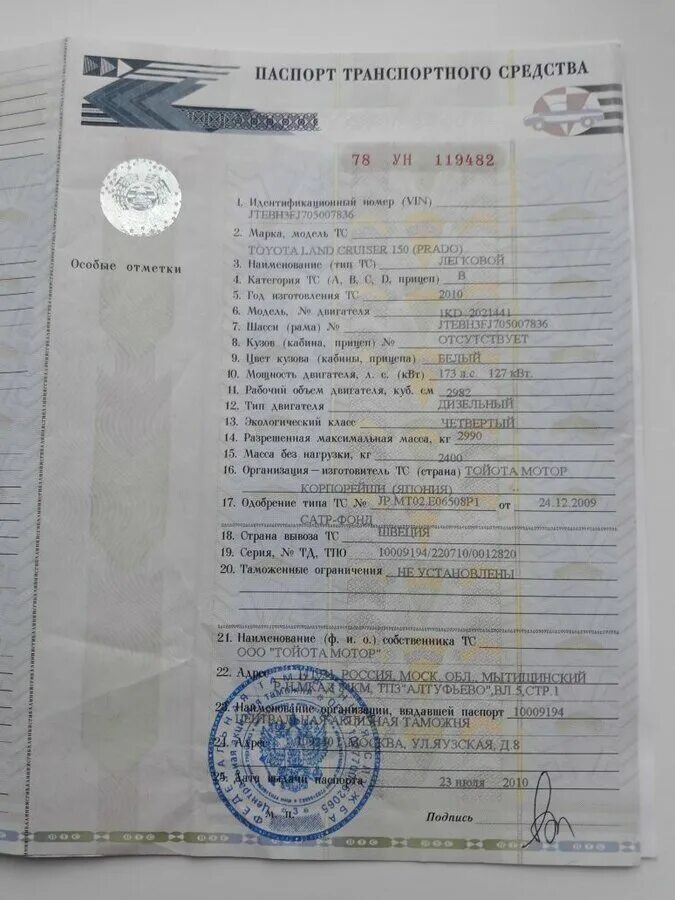 ПАСПОРТ ТРАНСПОРТНОГО СРЕДСТВА
78 УН 119482
Особые отметки
1. Идентификационный номер (VIN)
JTEBH3FJ705007836
2. Марка, модель ТС
TOYOTA LAND CRUISER 150 (PRADO)
3. Наименование (тип ТС) ЛЕГКОВОЙ
4. Категория ТС (A, B, C, D, прицеп) B
5. Год изготовления ТС 2010
6. Модель, № двигателя 1KD 2021441
7. Шасси (рама) № JTEBH3FJ705007836
8. Кузов (кабина, прицеп) № ОТСУТСТВУЕТ
9. Цвет кузова (кабины, прицепа) БЕЛЫЙ
10. Мощность двигателя, л. с. (кВт) 173 л.с. 127 кВт.
11. Рабочий объем двигателя, куб. см 2982
12. Тип двигателя ДИЗЕЛЬНЫЙ
13. Экологический класс ЧЕТВЕРТЫЙ
14. Разрешенная максимальная масса, кг 2990
15. Масса без нагрузки, кг 2400
16. Организация — изготовитель ТС (страна) ТОЙОТА МОТОР
КОРПОРЕЙШН (ЯПОНИЯ)
17. Одобрение типа ТС № JP.MT02.E06508P1 от 24.12.2009
САТР-ФОНД
18. Страна вывоза ТС ШВЕЦИЯ
19. Серия, № ТД, ТПО 10009194/220710/0012820
20. Таможенные ограничения НЕ УСТАНОВЛЕНЫ
21. Наименование (ф. и. о.) собственника ТС
ООО "ТОЙОТА МОТОР"
22. Адрес РОССИЯ, МОСК. ОБЛ., МЫТИЩИНСКИЙ
ТПЗ"АЛТУФЬЕВО",ВЛ.5,СТР.1
23. Наименование организации, выдавшей паспорт 10009194
ЦЕНТРАЛЬНАЯ АКЦИЗНАЯ ТАМОЖНЯ
24. Адрес МОСКВА, УЛ.ЯУЗСКАЯ, Д.8
25. Дата выдачи паспорта 23 июля 2010
М. п.
Подпись